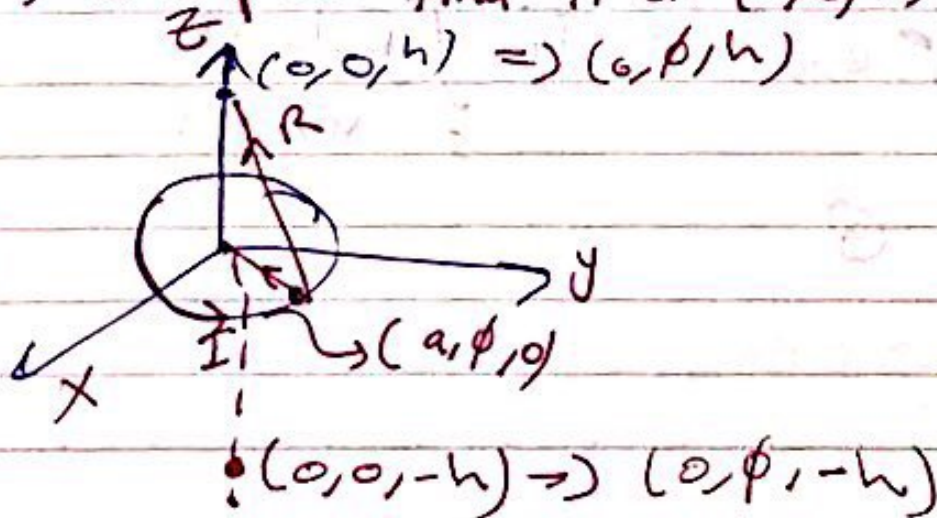 Z
(0,0,h) => (0,φ,h)
R
y
I
(a,φ,0)
X
(0,0,-h) → (0,φ,-h)